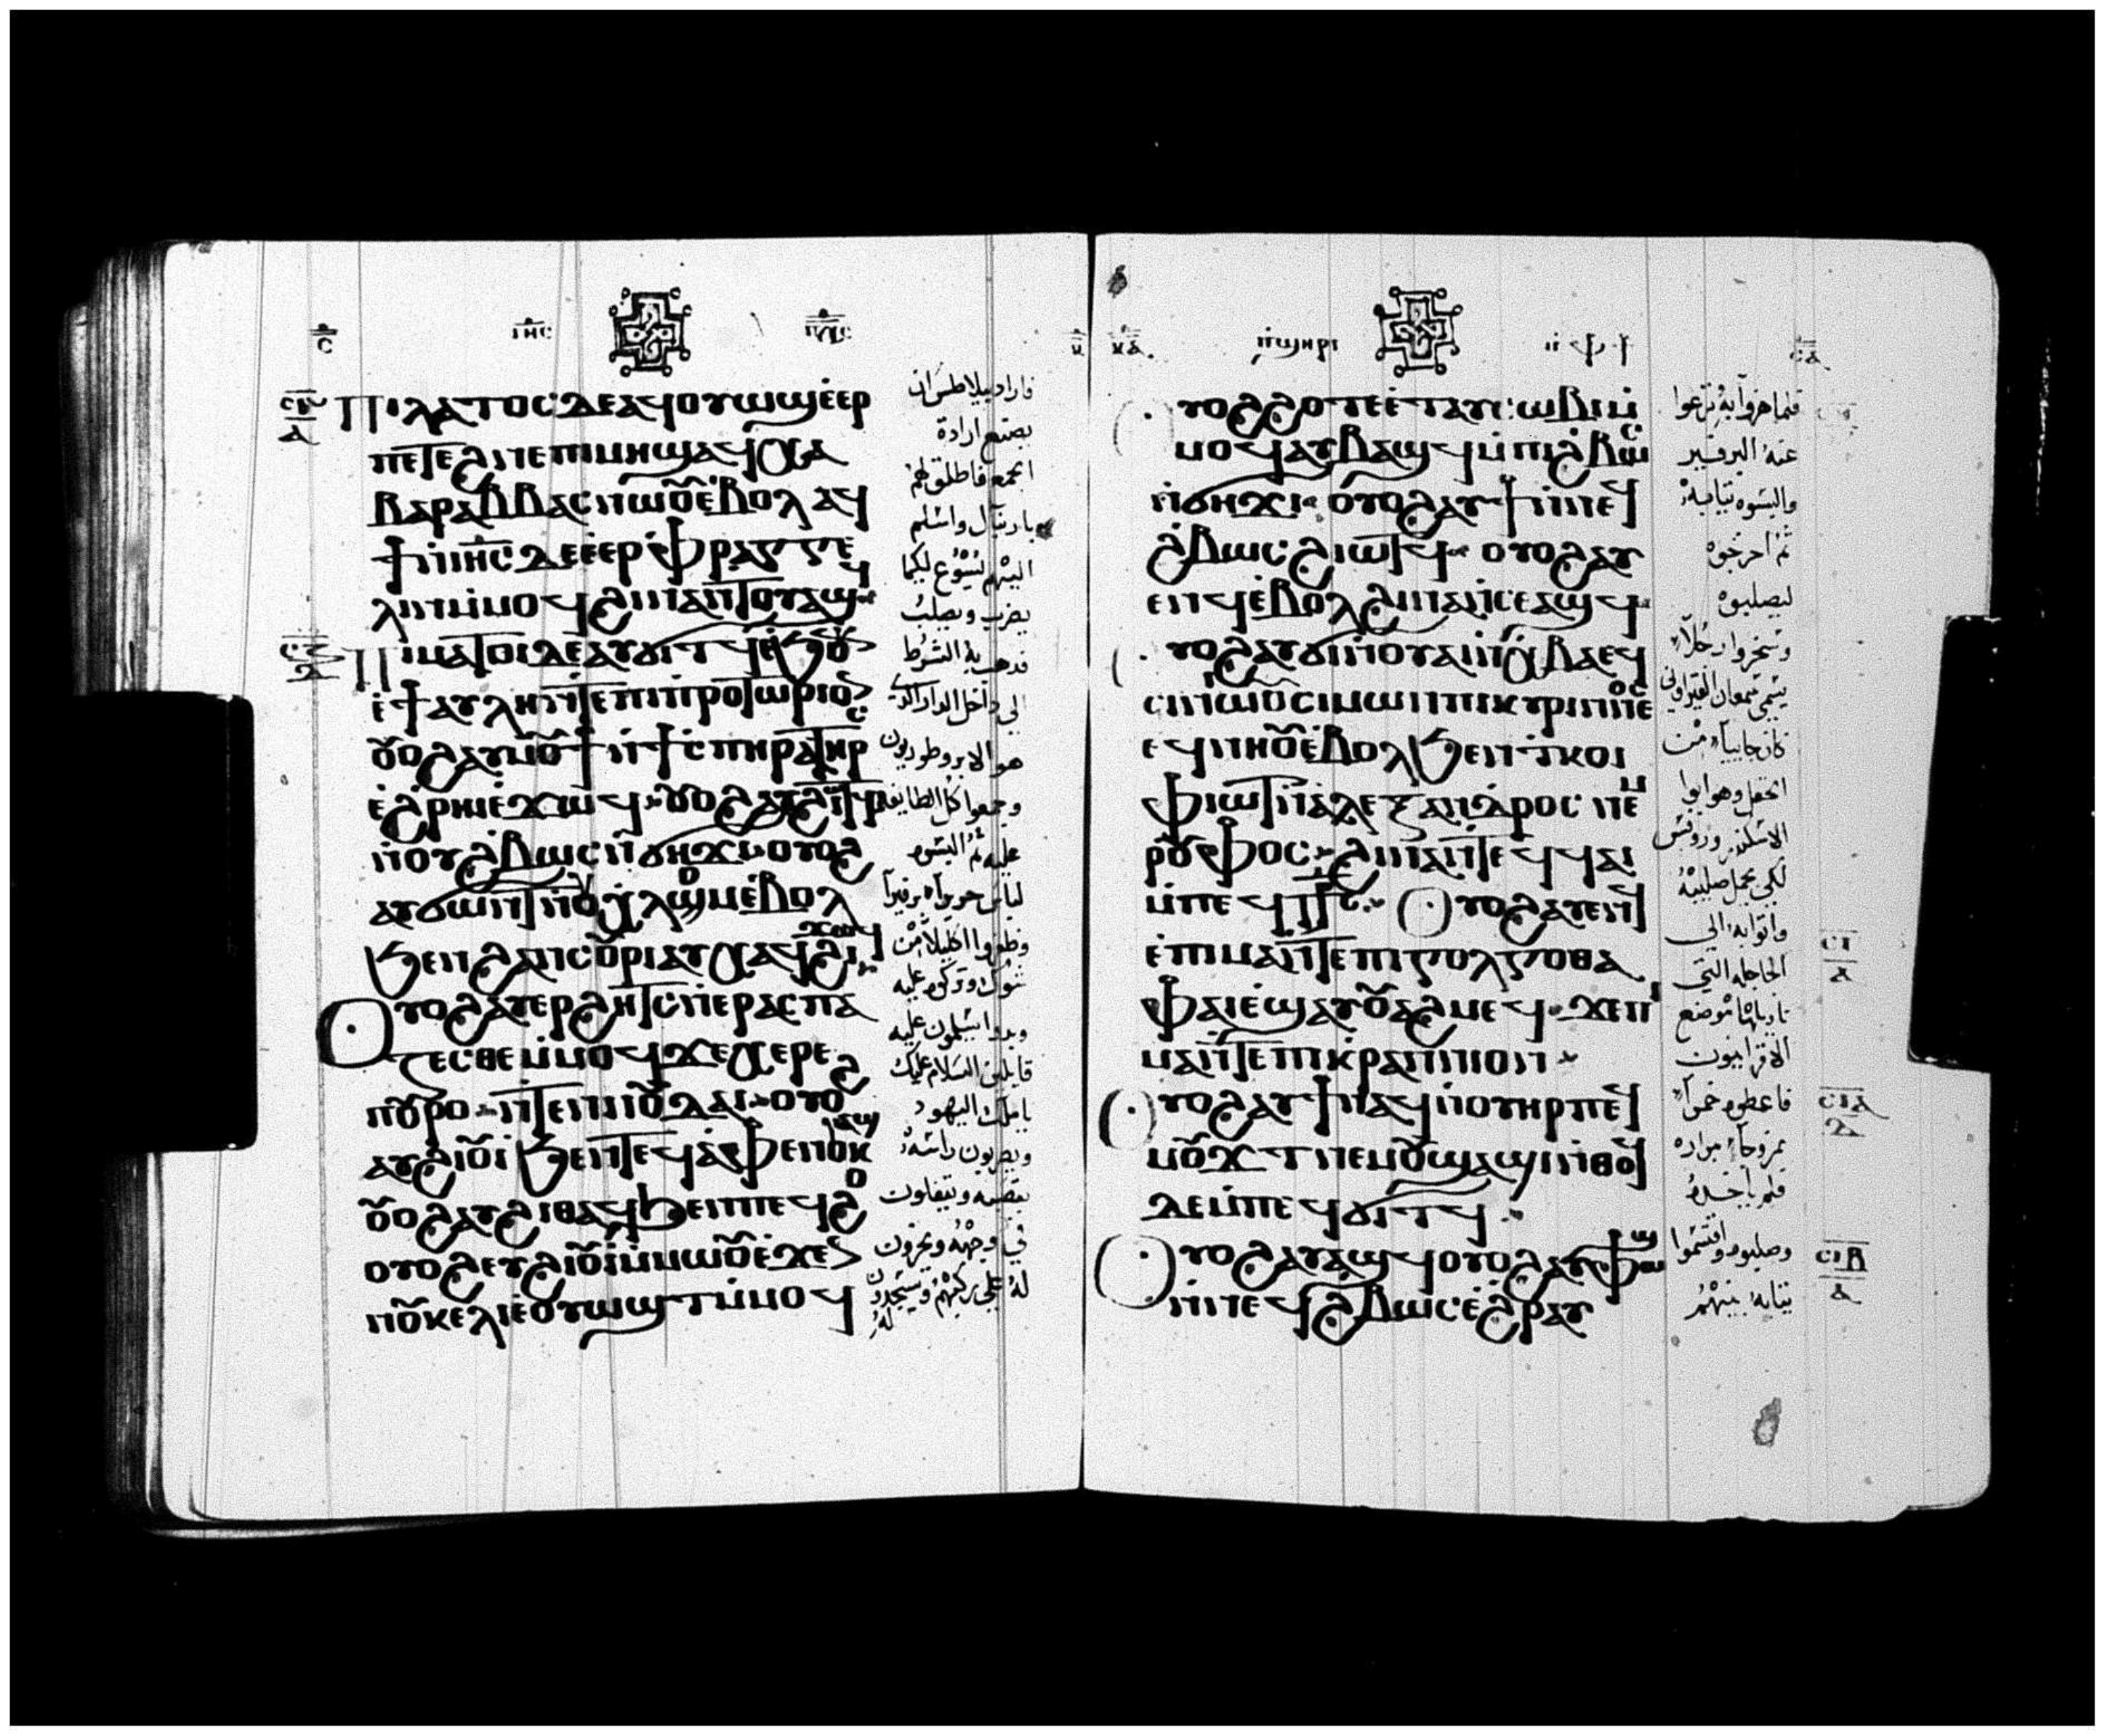 ⲥ̅ ⲓⲏ̅ⲥ ⲡ̅ⲭ̅ⲥ
Ⲡⲓⲗⲁⲧⲟⲥ ⲇⲉ ⲁϥⲟⲩⲱϣ ⲉ̇ⲉⲣ
ⲡⲉⲧⲉϩⲛⲉ ⲡⲓⲙⲏϣ ⲁϥⲭⲁ
ⲃⲁⲣⲁⲃⲃⲁⲥ ⲛⲱⲟⲩ ⲉ̇ⲃⲟⲗ ⲁϥ
ϯ ⲛ̇ⲓⲏ̅ⲥ ⲇⲉ ⲉ̇ⲉⲣⲫⲣⲁⲅⲅⲉ
ⲗⲗⲓⲛ ⲙ̇ⲙⲟϥ ϩⲓⲛⲁ ⲛ̇ⲧⲟⲩⲁϣϥ
Ⲡⲓⲙⲁⲧⲟⲓ ⲇⲉ ⲁⲩϭⲓⲧϥ ⲉ̇ϧⲟⲩⲛ
ⲉ̇ϯⲁⲩⲗⲏ ⲛ̇ⲧⲉ ⲡⲓⲡⲣⲉⲧⲱⲣⲓⲟⲛ
ⲟⲩⲟϩ ⲁⲩⲙⲟⲩϯ ⲛ̇ϯⲥⲡⲏⲣⲁ ⲧⲏⲣⲥ
ⲉ̇ϩⲣⲏⲓ ⲉ̇ϫⲱϥ ⲟⲩⲟϩ ⲁⲩϯ ϩⲓⲱⲧϥ
ⲛ̇ⲟⲩϩⲃⲱⲥ ⲛ̇ϭⲏϫⲓ ⲟⲩⲟϩ
ⲁⲩϭⲱⲛⲧ ⲛ̇ⲟⲩⲭⲗⲟⲙ ⲉ̇ⲃⲟⲗ
ϧⲉⲛ ϩⲁⲛⲥⲟⲩⲣⲓ ⲁⲩⲭⲁϥ ϩⲓϫⲱϥ
Ⲟⲩⲟϩ ⲁⲩⲉⲣϩⲏⲧⲥ ⲛ̇ⲉⲣⲁⲥⲡⲁ
ⲍⲉⲥⲑⲉ ⲙ̇ⲙⲟϥ ϫⲉ ⲭⲉⲣⲉ
ⲡⲟⲩⲣⲟ ⲛ̇ⲧⲉ ⲛⲓⲓⲟⲩⲇⲁⲓ ⲟⲩⲟϩ
ⲁⲩϩⲓⲟⲩⲓ̇ ϧⲉⲛ ⲧⲉϥⲁ̇ⲫⲉ ⲛ̇ⲟⲩⲕⲁϣ
ⲟⲩⲟϩ ⲁⲩϩⲓⲑⲁϥ ϧⲉⲛ ⲡⲉϥϩⲟ
ⲟⲩⲟϩ ⲉⲩϩⲓⲟⲩⲓ̇ ⲙ̇ⲙⲱⲟⲩ ⲉ̇ϫⲉⲛ
ⲛⲟⲩⲕⲉⲗⲓ ⲉⲩⲟⲩⲱϣⲧ ⲙ̇ⲙⲟϥ
فاراد بيلاطس ان
يصنع ارادة
الجمع فاطلق لهم
باربان واسلم
اليهم يسوع لكيما
يضرب ويصلب
فذهب به الشرط
الى داخل الدار التى
هو الابروطوريون
وجمعوا كل الطايفة
عليه ثم البسوه
لباس حريرا برفيرا
وظفروا اكليلا من
شوك وتركوه عليه
وبدوا يسلمون عليه
قايلين السلام عليك
ياملك اليهود
ويضربون راسه
بقصبة ويتفلون
فى وجهه ويخرون
له على ركبهم ويسجدون
له
ⲕⲁ ⲡ̇ϣⲏⲣⲓ ⲙ̇ⲫϯ ⲥⲁ
Ⲟⲩⲟϩ ϩⲟⲧⲉ ⲉ̇ⲧⲁⲩⲥⲱⲃⲓ ⲙ̇
ⲙⲟϥ ⲁⲩⲃⲁϣϥ ⲙ̇ⲡⲓϩⲃⲱⲥ
ⲛ̇ϭⲏϫⲓ ⲟⲩⲟϩ ⲁⲩϯ ⲛ̇ⲛⲉϥ
ϩⲃⲱⲥ ϩⲓⲱⲧϥ ⲟⲩⲟϩ ⲁⲩ
ⲉⲛϥ ⲉ̇ⲃⲟⲗ ϩⲓⲛⲁ ⲛ̇ⲥⲉⲁϣϥ
Ⲟⲩⲟϩ ⲁⲩϭⲓ ⲛ̇ⲟⲩⲁⲓ ⲛ̇ⲭⲃⲁ ⲉϥ
ⲥⲓⲛⲓⲱⲟⲩ ⲥⲓⲙⲱⲛ ⲡⲓⲕⲩⲣⲓⲛⲛⲉⲟⲥ
ⲉϥⲛⲏⲟⲩ ⲉ̇ⲃⲟⲗ ϧⲉⲛ ⲧ̇ⲕⲟⲓ
ⲫⲓⲱⲧ ⲛ̇ⲁ̇ⲗⲉⲝⲁⲛⲇⲣⲟⲥ ⲛⲉⲙ
ⲣⲟⲩⲫⲟⲥ ϩⲓⲛⲁ ⲛ̇ⲧⲉϥϥⲁⲓ
ⲙ̇ⲡⲉϥⲥ̅ⲧ̅ⲥ̅ Ⲟⲩⲟϩ ⲁⲩⲉⲛϥ
ⲉ̇ⲡⲓⲙⲁ ⲛ̇ⲧⲉ ⲡⲓⲅⲟⲗⲅⲟⲑⲁ
ⲫⲁⲓ ⲉ̇ϣⲁⲩⲟⲩⲁϩⲙⲉϥ ϫⲉ ⲡⲓ
ⲙⲁ ⲛ̇ⲧⲉ ⲡⲓⲕⲣⲁⲛⲓⲟⲛ
Ⲟⲩⲟϩ ⲁⲩϯ ⲛⲁϥ ⲛ̇ⲟⲩⲏⲣⲡ ⲉϥ
ⲙⲟϫⲧ ⲛⲉⲙ ⲟⲩϣⲁϣⲓ ⲛ̇ⲑⲟϥ
ⲇⲉ ⲙ̇ⲡⲉϥϭⲓⲧϥ
Ⲟⲩⲟϩ ⲁⲩⲁϣϥ ⲟⲩⲟϩ ⲁⲩⲫⲱϣ
ⲛ̇ⲛⲉϥϩⲃⲱⲥ ⲉ̇ϩⲣⲁⲩ
فلما هزوا به نزعوا
عنه البرفير
والبسوه ثيابه
ثم اخرجوه
ليصلبوه
وسخروا رجلا
يسمى سمعان القيراونى
كان جاييا من
الحقل وهو ابوا
الاسكندر وروفس
لكى يحمل صليبه
واتوا به الى
الجاجله التى
تاويلها موضع
الاقرانيون
فاعطوه خمرا
ممزوجا مراره
فلم ياخذه
وصلبوه واقتسموا
ثيابه بينهم
ⲥⲓ
ⲁ
ⲥⲓⲁ
ⲇ
ⲥⲓⲃ
ⲁ